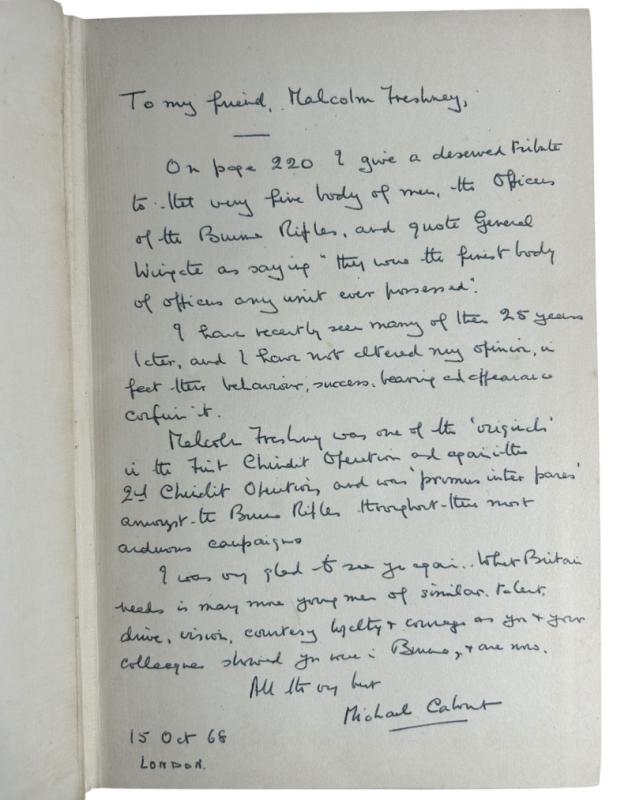 To my friend, Malcolm Freshney,
On page 220 I give a deserved tribute
to that very fine body of men, the Officers
of the Burma Rifles, and quote General
Wingate as saying "they were the finest body
of officers any unit ever possessed".
I have recently seen many of them 25 years
later, and I have not altered my opinion, in
fact their behaviour, success, bearing and appearance
confirm it.
Malcolm Freshney was one of the 'originals'
in the First Chindit Operation and again in the
2nd Chindit Operation, and was 'primus inter pares'
amongst the Burma Rifles throughout these most
arduous campaigns
I was very glad to see you again. What Britain
needs is many more young men of similar talent,
drive, vision, courtesy loyalty & courage as you & your
colleagues showed you were in Burma, & are now.
All the very best
Michael Calvert
15 Oct 68
LONDON.